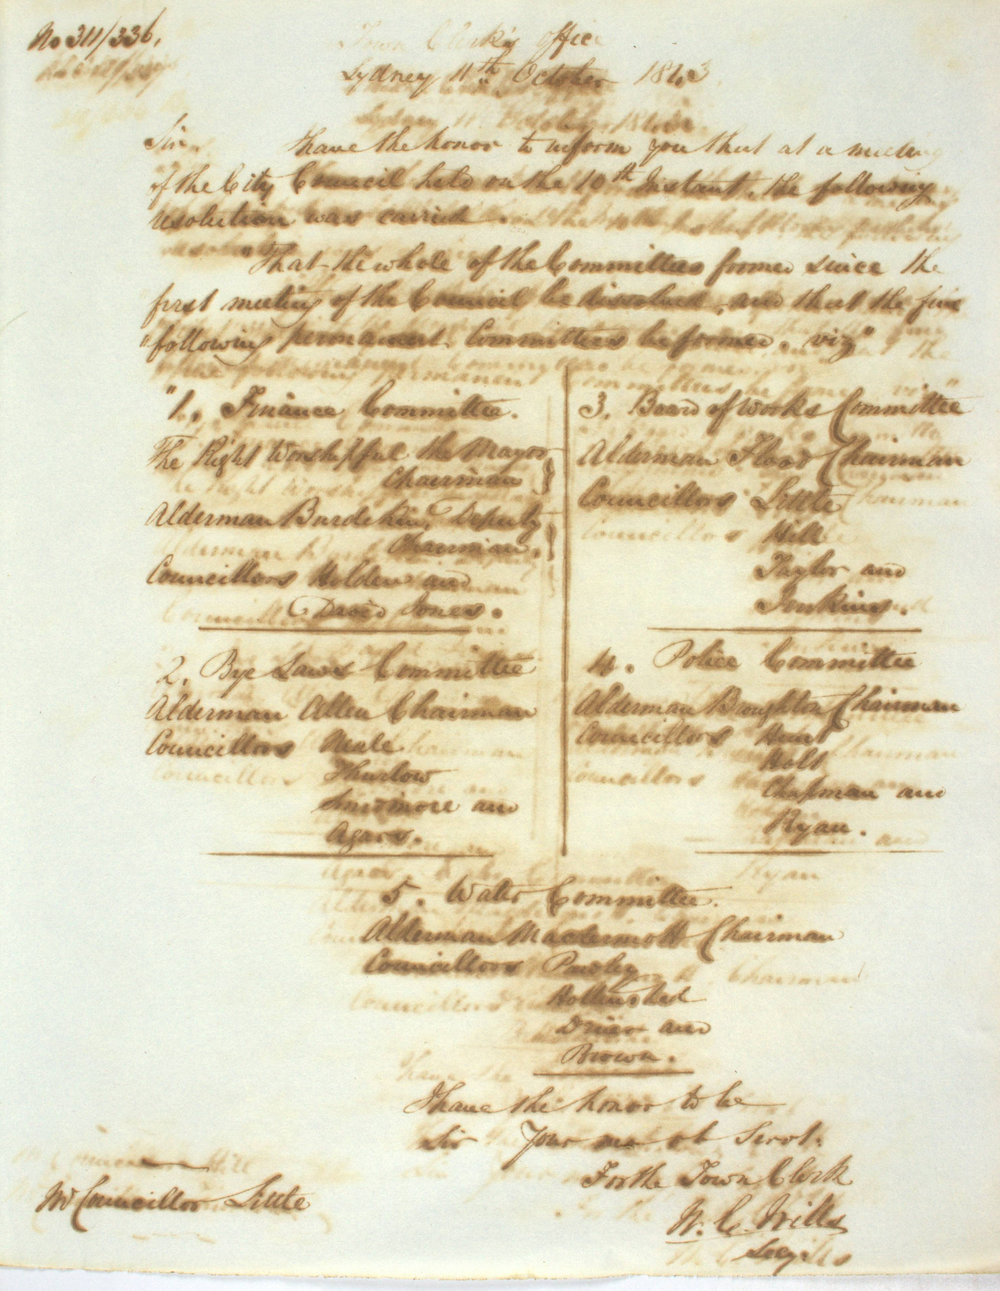 No 311/336.
Town Clerk's Office
Sydney 11th October 1843
Sir,
I have the honor to inform you that at a meeting
of the City Council held on the 10th Instant, the following
resolution was carried.
"That the whole of the Committees formed since the
first meeting of the Council be dissolved, and that the five
"following permanent Committees be formed. viz"
"1. Finance Committee.
The Right Worshipful the Mayor
Chairman
Alderman Burdekin Deputy
Chairman.
Councillors Holden and
David Jones.
2. Bye Laws Committee
Alderman Allen Chairman
Councillors Neale
Thurlow
and
Agars.
3. Board of Works Committee
Alderman Flood Chairman
Councillors Little
Hill
Taylor and
Jenkins.
4. Police Committee
Alderman Broughton Chairman
Councillors Hunt
Holt
Chapman and
Ryan.
5. Water Committee.
Alderman Macdermott Chairman
Councillors
Hollinshed
Driver and
Brown.
I have the honor to be
Sir Your mo ob Servt.
For the Town Clerk
W. C. Wills
Secy
Mr Councillor Little